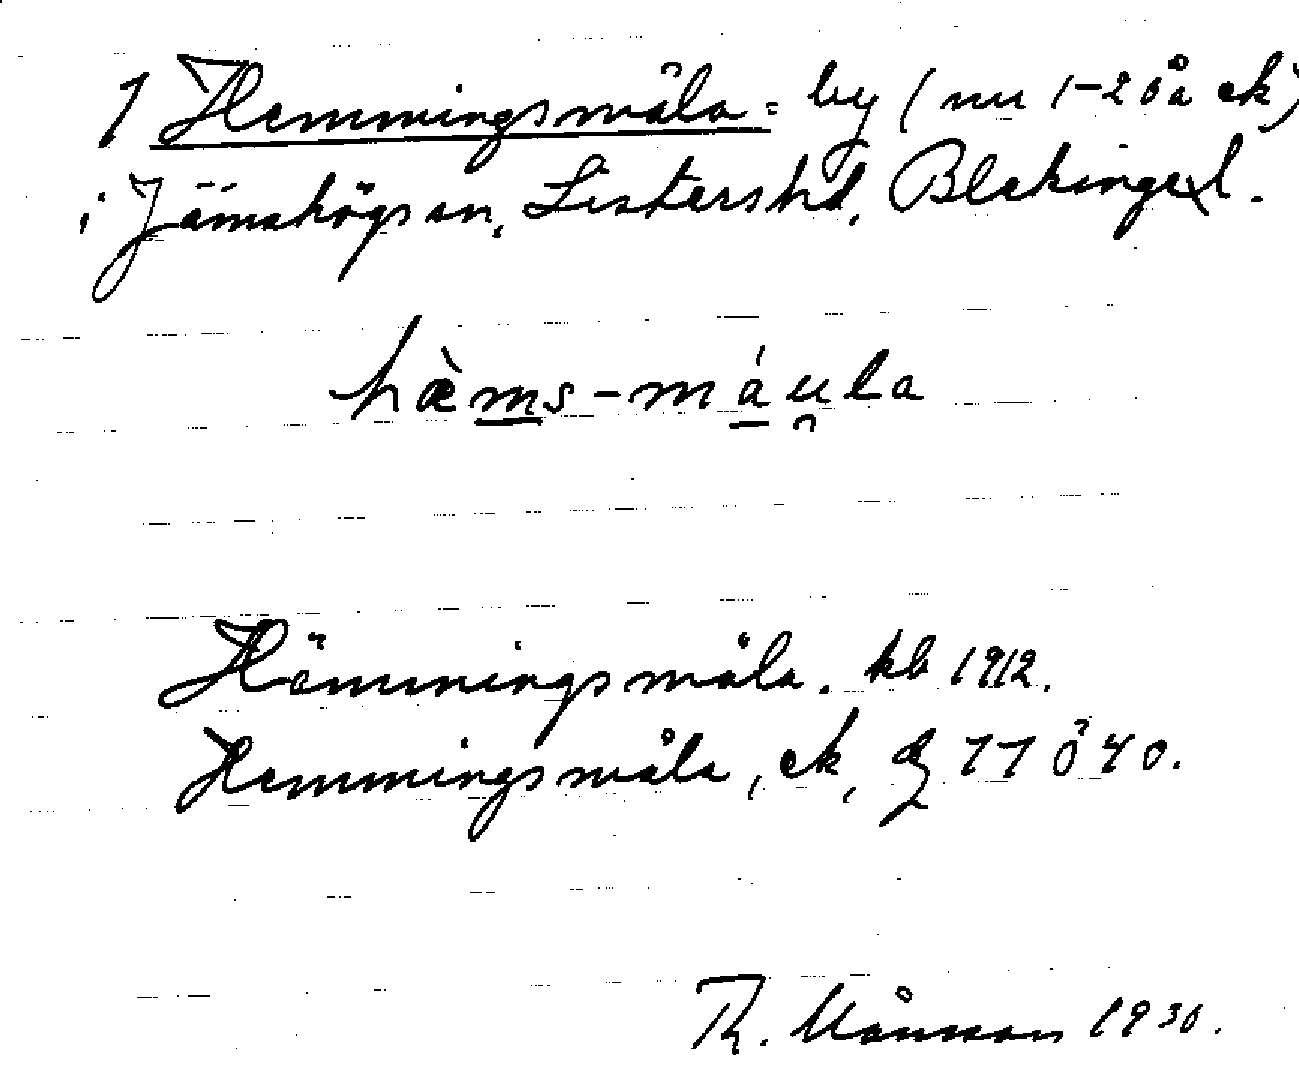 1 Hemmingsmåla = by (nu 1-2 då ek)
i Jämshögs sn, Listers hd, Blekinge l.
hæ̀ms-máu̯la
Hämmingsmåla. kb 1912.
Hemmingsmåla, ek, 77 Ö 40.
Th. Månsson 1930.